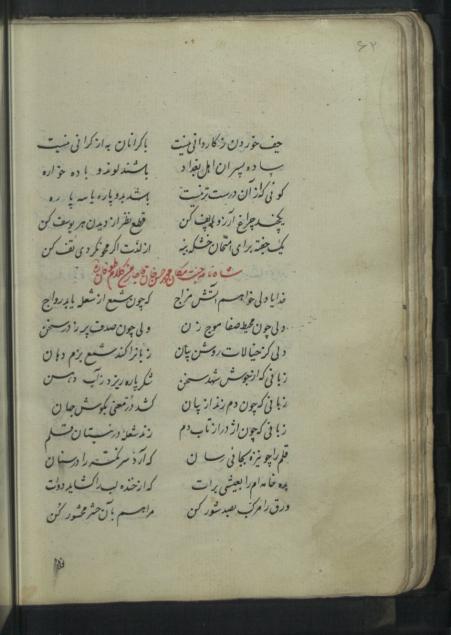 ۶۲
حیف خوردن ز کاروانی نیست با کرانان به از کرانی نیست
ساده پسران اهل بغداد باشند لوند و باده خواره
کونی که از آن درست تر نیست باشد دو پاره یا سه پاره
یکچند چراغ آرزو پف کن قطع نظر از دیدن هر یوسف کن
یک جفته برای امتحان خشکه بنه از لذت اگر محو نکردی تف کن
خدایا دلی خواهم آتش مزاج که چون شمع از شعله یابد رواج
دلی چون محیط صفا موج زن ولی چون صدف پر ز در سخن
دلی کز خیالات روشن بیان زبانرا کند شمع بزم دهان
زبانی که از جوش شهد سخن شکر پاره ریزد ز آب دهن
زبانی که چون دم زند از بیان کشد در معنی بگوش جهان
زبانی که چون اژدر از تاب دم زند شعله در نیستان قلم
قلم را چو نیزه بجائی رسان که آرد سر نکته را در سنان
بده خامه ام را بعیشی برات که از خنده لب را گشاید دوات
ورق را مرکب بصد شور کن مرا هم بآن حشر محشور کن